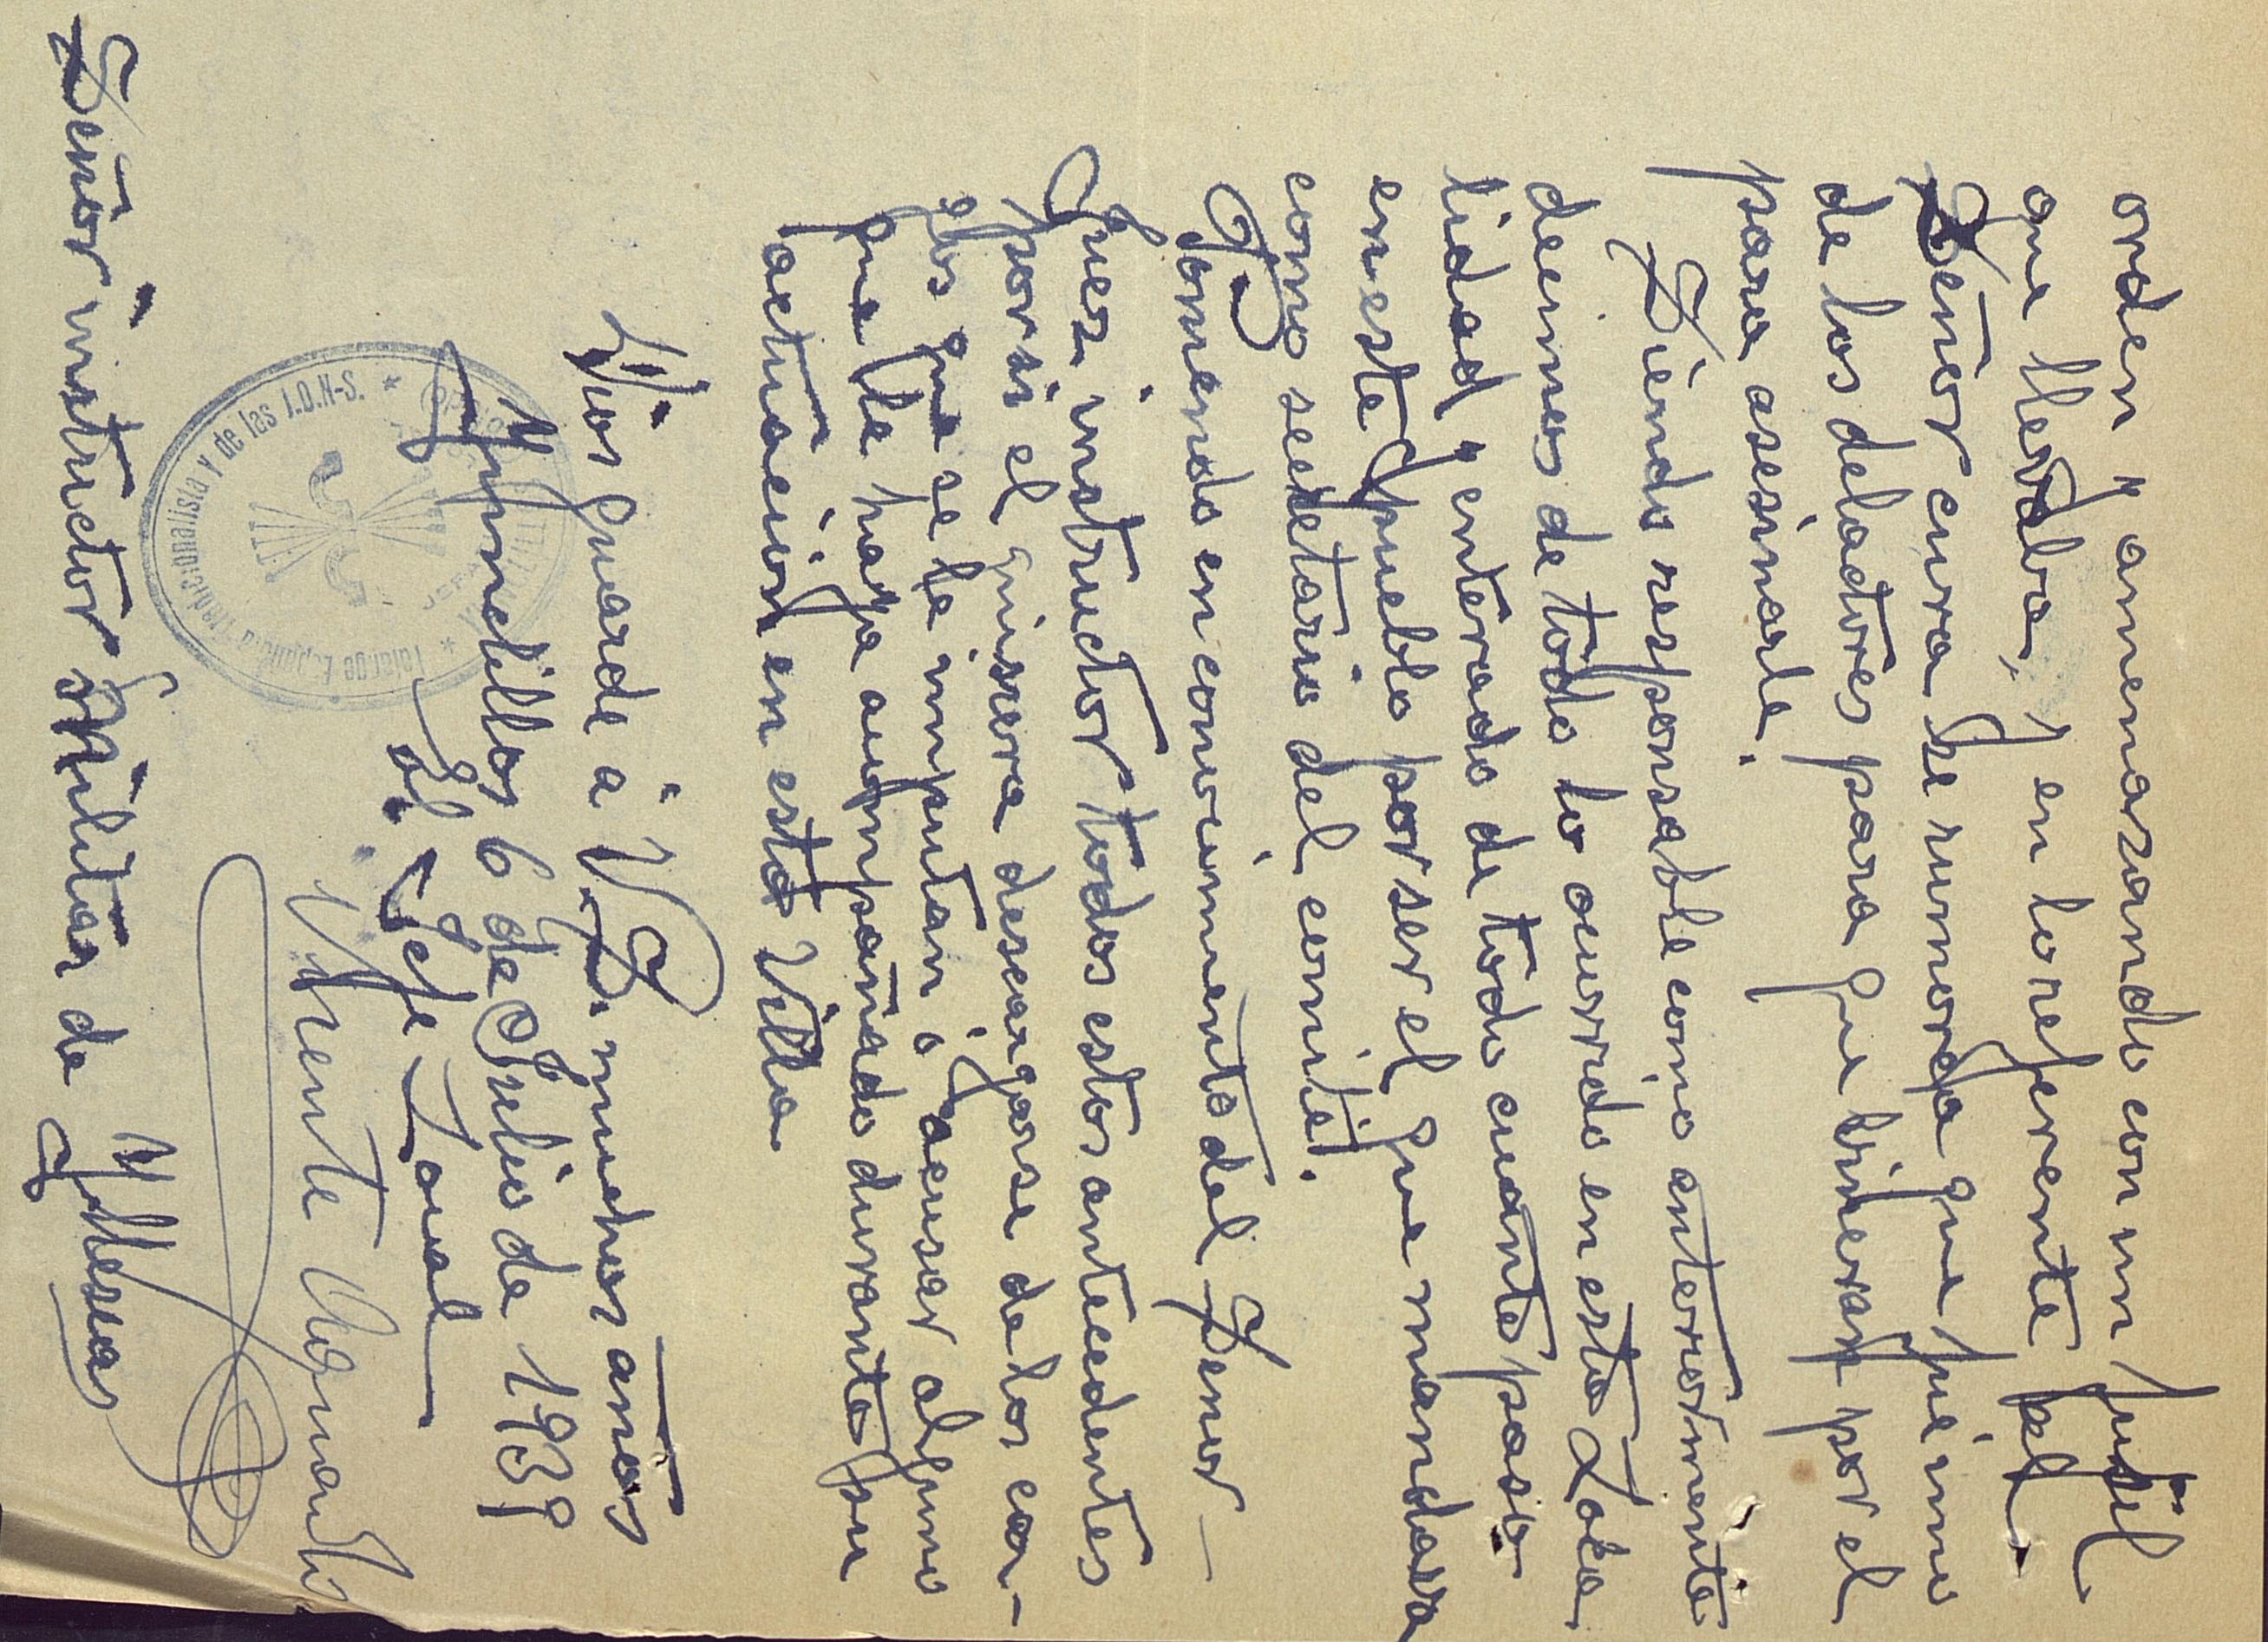 orden y amenasando con un fusil
que llebaba, y en lo referente al
Señor cura he numorofa que hicimo
de los delatores para que biheran por el
para asesinarle.
Siendo responsable como anteriormente
decimos de todo lo ocurrdo en esta Loca
lidad y enterado de todo cuanto paso
en este pueblo por ser el que mandava
como seretario del comité.
Pongo en conocimiento del Señor
Juez instructor todos estos antecedentes
por si el quisiera descargarse de los car-
gos que se le imputan o acusar alguno
que le haya acompañado durante su
actuacion en esta Villa.
Dios guarde a V.S. muchos años
Ajunedillos 6 de Julio de 1939
El Jefe Local
Vicente
Señor instructor Militar de Yllescas
Tradicionalista y de las J.O.N-S.